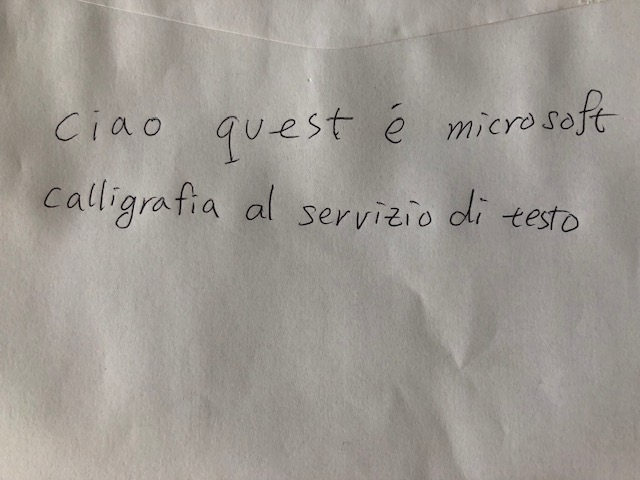 Ciao quest é microsoft
calligrafia al servizio di testo